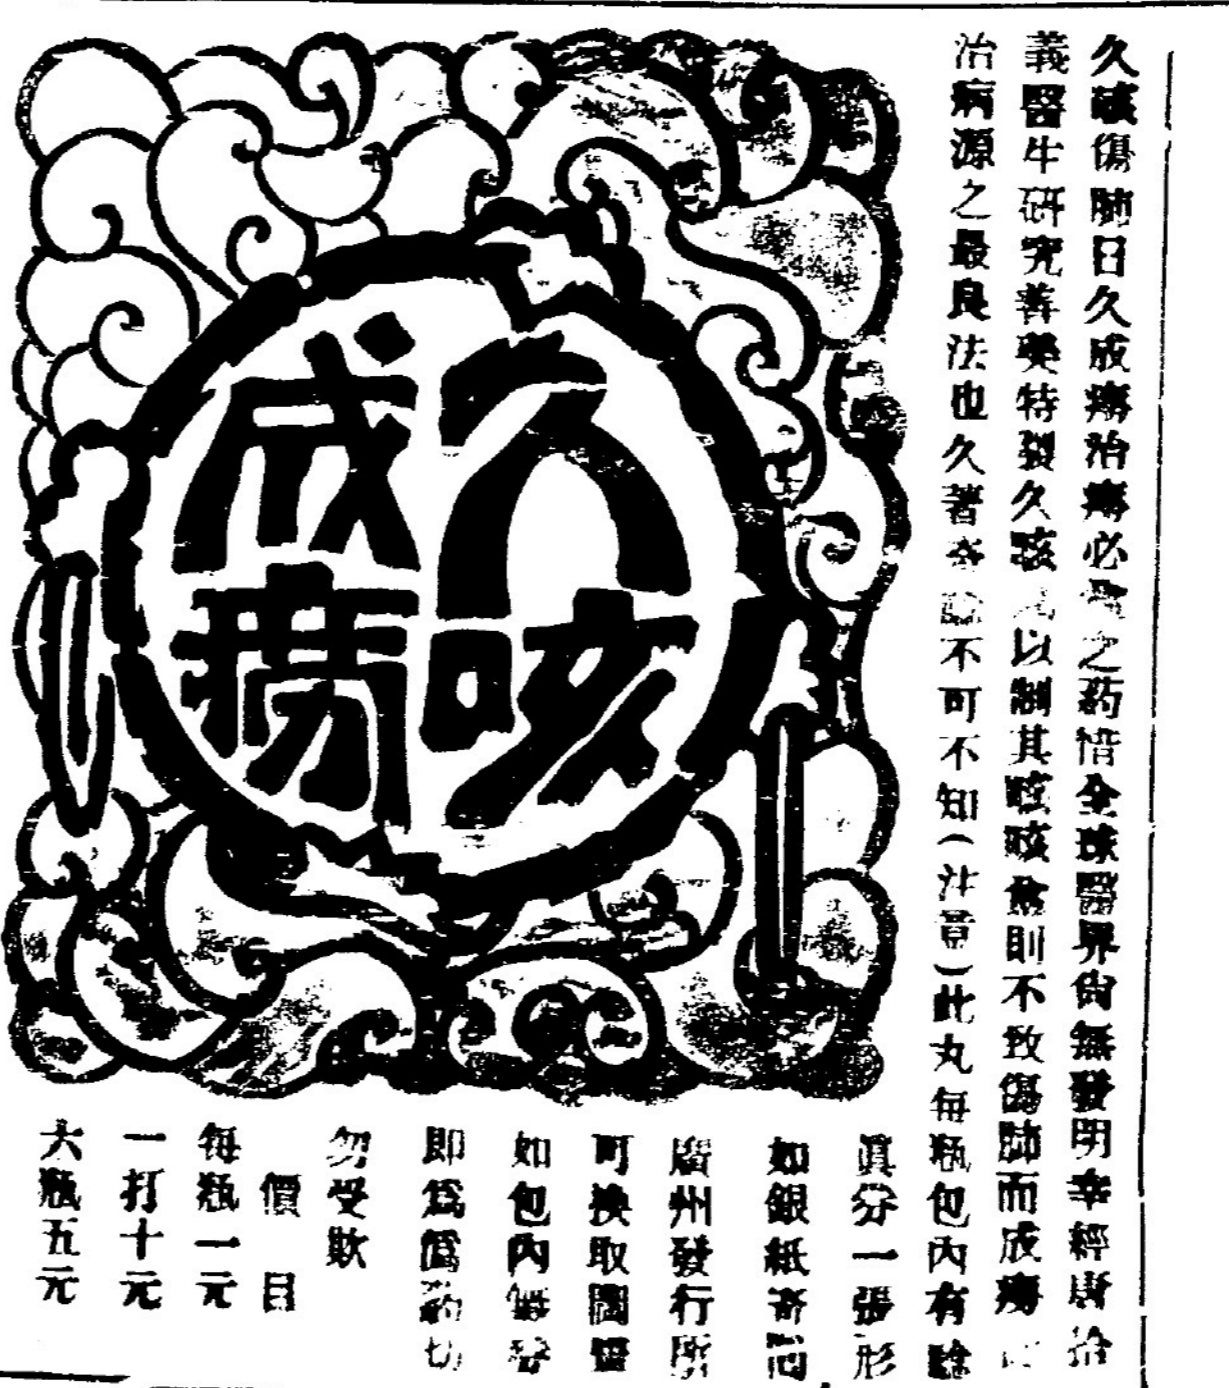 久咳傷肺日久成癆治癆必 之药惜全球醫界尙無發明幸經唐拾
義醫生研究善藥特製久咳 以制其咳咳愈則不致傷肺而成癆
治病源之最良法也久著奇驗不可不知(注意)此丸每瓶包內有證
眞券一張形
如銀紙寄 
廣州發行所
可換取圖畫
如包內無券
即爲僞药切
勿受欺
價目
每瓶一元
一打十元
六瓶五元
久咳
成癆